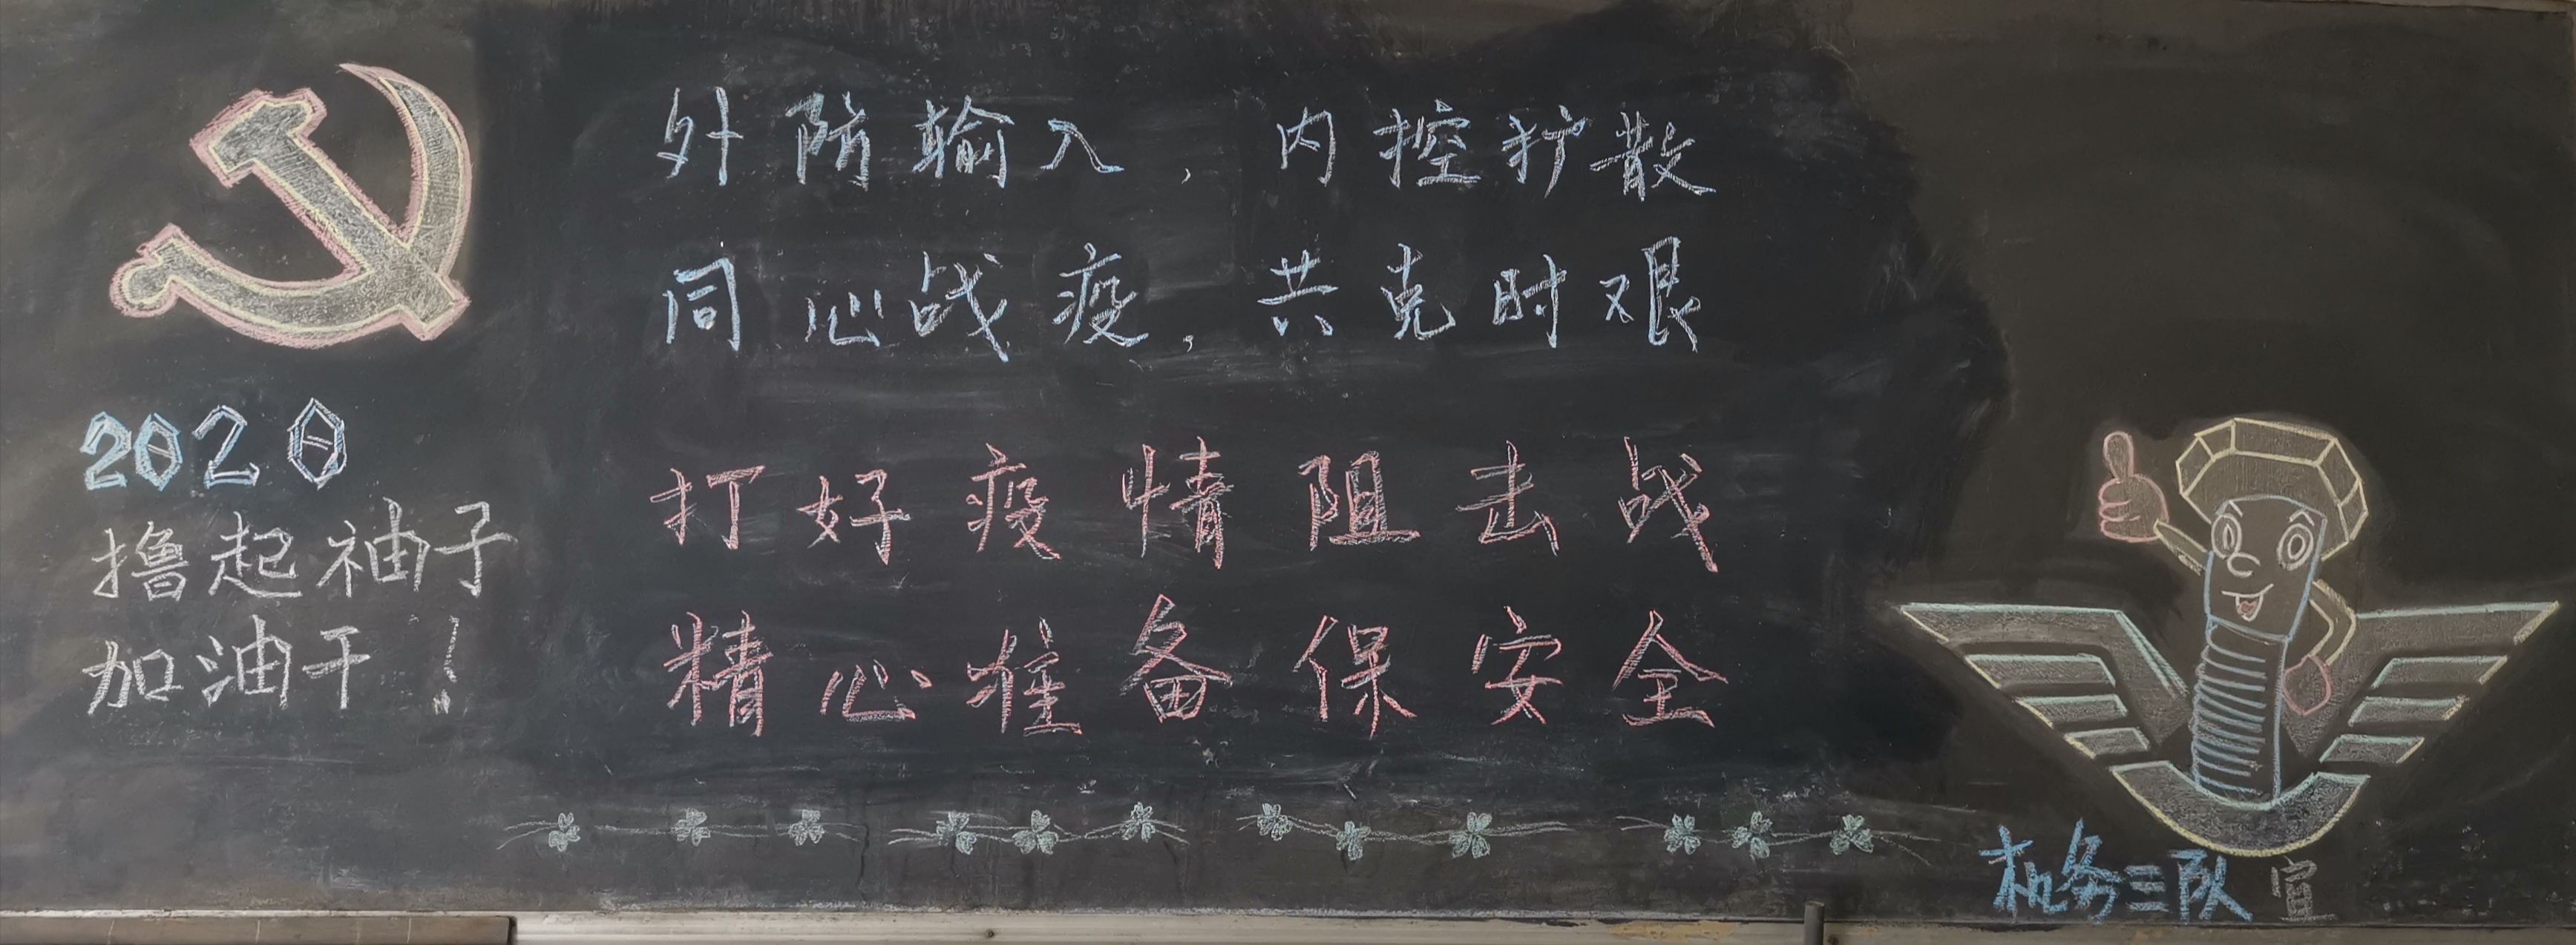 外防输入，内控扩散
同心战疫，共克时艰
打好疫情阻击战
精心准备保安全
2020
撸起袖子
加油干！
机务三队 宣